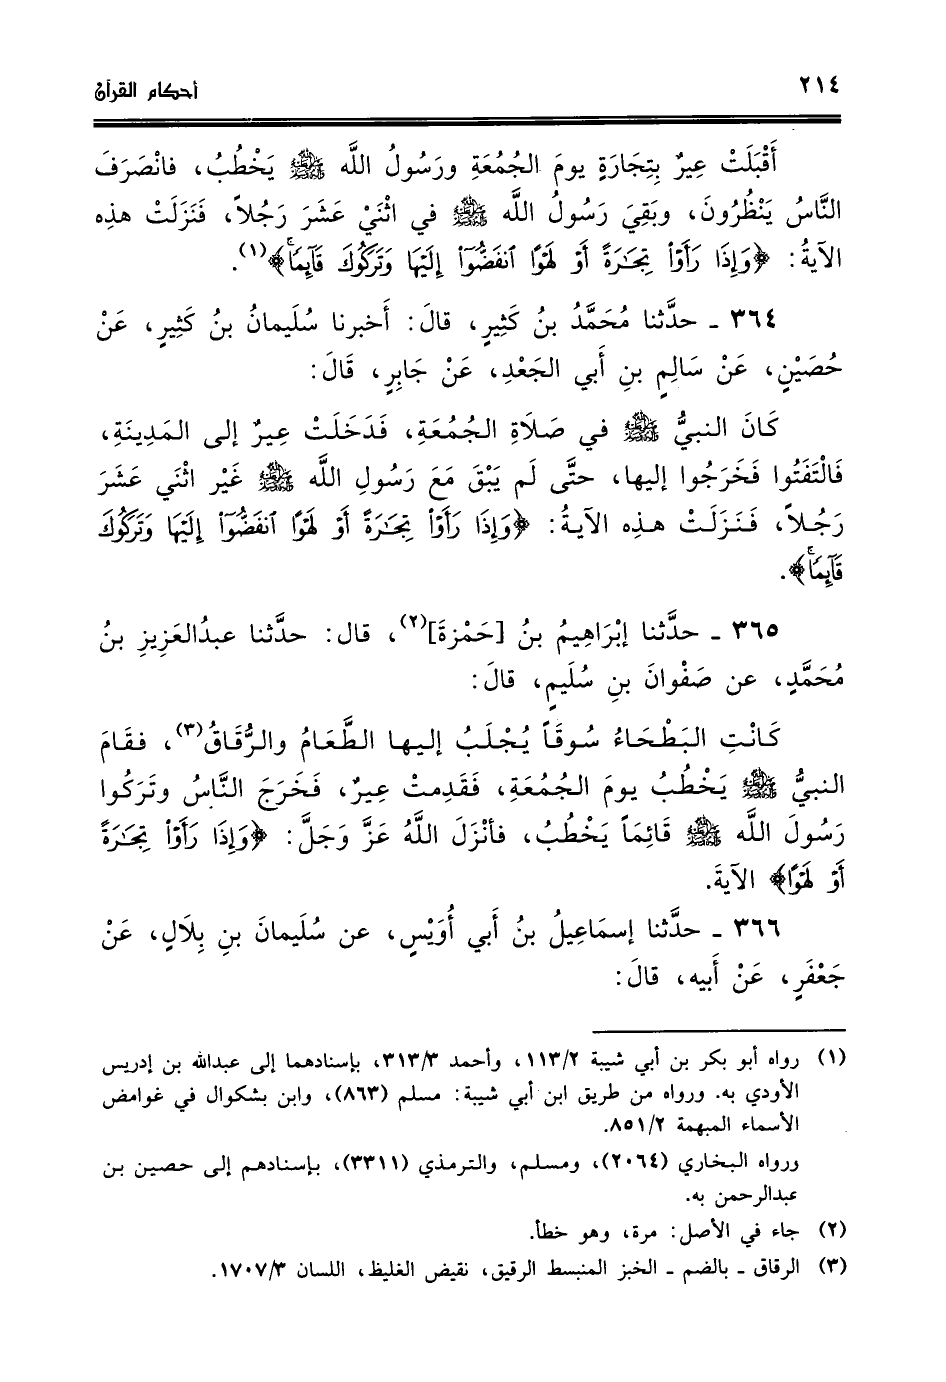 ٢١٤
أحكام القرآن
أَقْبَلَتْ عِيرٌ بِتِجَارَةٍ يومَ الجُمُعَةِ ورَسُولُ اللَّه ﷺ يَخْطُبُ، فانْصَرَفَ
النَّاسُ يَنْظُرُونَ، وبَقِيَ رَسُولُ اللَّه ﷺ في اثْنَيْ عَشَرَ رَجُلاً، فَنَزَلَتْ هذه
الآيةُ: ﴿وَإِذَا رَأَوْا۟ تِجَـٰرَةً أَوْ لَهْوًا ٱنفَضُّوٓا۟ إِلَيْهَا وَتَرَكُوكَ قَآئِمًا ۚ﴾(١).
٣٦٤ ـ حدَّثنا مُحَمَّدُ بنُ كَثِيرٍ، قالَ: أَخبرنا سُلَيمانُ بنُ كَثِيرٍ، عَنْ
حُصَيْنٍ، عَنْ سَالِمِ بنِ أَبي الجَعْدِ، عَنْ جَابِرٍ، قَالَ:
كَانَ النبيُّ ﷺ في صَلَاةِ الجُمُعَةِ، فَدَخَلَتْ عِيرٌ إلى المَدِينَةِ،
فَالْتَفَتُوا فَخَرَجُوا إليها، حتَّى لَم يَبْقَ مَعَ رَسُولِ اللَّه ﷺ غَيْر اثْنَي عَشَرَ
رَجُلاً، فَنَزَلَتْ هذِه الآيةُ: ﴿وَإِذَا رَأَوْا۟ تِجَـٰرَةً أَوْ لَهْوًا ٱنفَضُّوٓا۟ إِلَيْهَا وَتَرَكُوكَ
قَآئِمًا ۚ﴾.
٣٦٥ ـ حدَّثنا إبْرَاهِيمُ بنُ [حَمْزةَ](٢)، قال: حدَّثنا عبدُالعَزِيزِ بنُ
مُحَمَّدٍ، عن صَفْوانَ بنِ سُلَيمٍ، قالَ:
كَانْتِ البَطْحَاءُ سُوقَاً يُجْلَبُ إليها الطَّعَامُ والرُّقَاقُ(٣)، فقَامَ
النبيُّ ﷺ يَخْطُبُ يومَ الجُمُعَةِ، فَقَدِمتْ عِيرٌ، فَخَرَجَ النَّاسُ وتَرَكُوا
رَسُولَ اللَّه ﷺ قَائِمَاً يَخْطُبُ، فأنْزَلَ اللَّهُ عَزَّ وَجَلَّ: ﴿وَإِذَا رَأَوْا۟ تِجَـٰرَةً
أَوْ لَهْوًا﴾ الآيةَ.
٣٦٦ ـ حدَّثنا إسمَاعِيلُ بنُ أَبي أُوَيْسٍ، عن سُلَيمانَ بنِ بِلَالٍ، عَنْ
جَعْفَرٍ، عَنْ أَبيه، قالَ:
(١) رواه أبو بكر بن أبي شيبة ١١٣/٢، وأحمد ٣١٣/٣، بإسنادهما إلى عبدالله بن إدريس
الأودي به. ورواه من طريق ابن أبي شيبة: مسلم (٨٦٣)، وابن بشكوال في غوامض
الأسماء المبهمة ٨٥١/٢.
ورواه البخاري (٢٠٦٤)، ومسلم، والترمذي (٣٣١١)، بإسنادهم إلى حصين بن
عبدالرحمن به.
(٢) جاء في الأصل: مرة، وهو خطأ.
(٣) الرقاق ـ بالضم ـ الخبز المنبسط الرقيق، نقيض الغليظ، اللسان ١٧٠٧/٣.